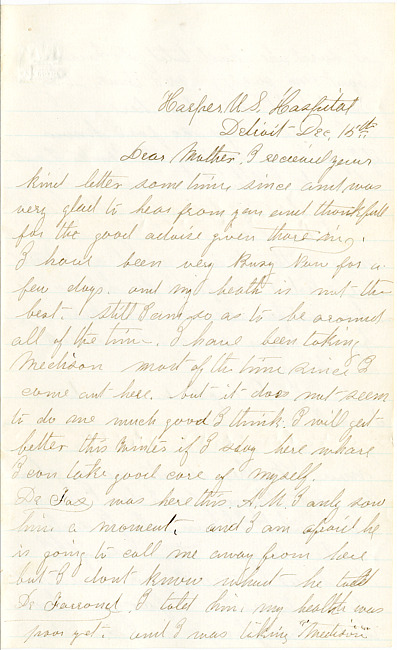 Harper U.S. Hospital
Detroit Dec. 15th
Dear Mother, I received your
kind letter some time since and was
very glad to hear from you and thankfull
for the good advise given there in,
I have been very busy now for a
few days. and my health is not the
best. still I am so as to be around
all of the time. I have been taking
Medison most of the time since I
come out here. but it does not seem
to do me much good I think. I will get
better this winter if I stay here where
I can take good care of myself.
Dr was here this. A.M. I only saw
him a moment, and I am afraid he
is going to call me away from here
but I dont know what he told
Dr I told him, my health was
poor yet. and I was taking "Medison"